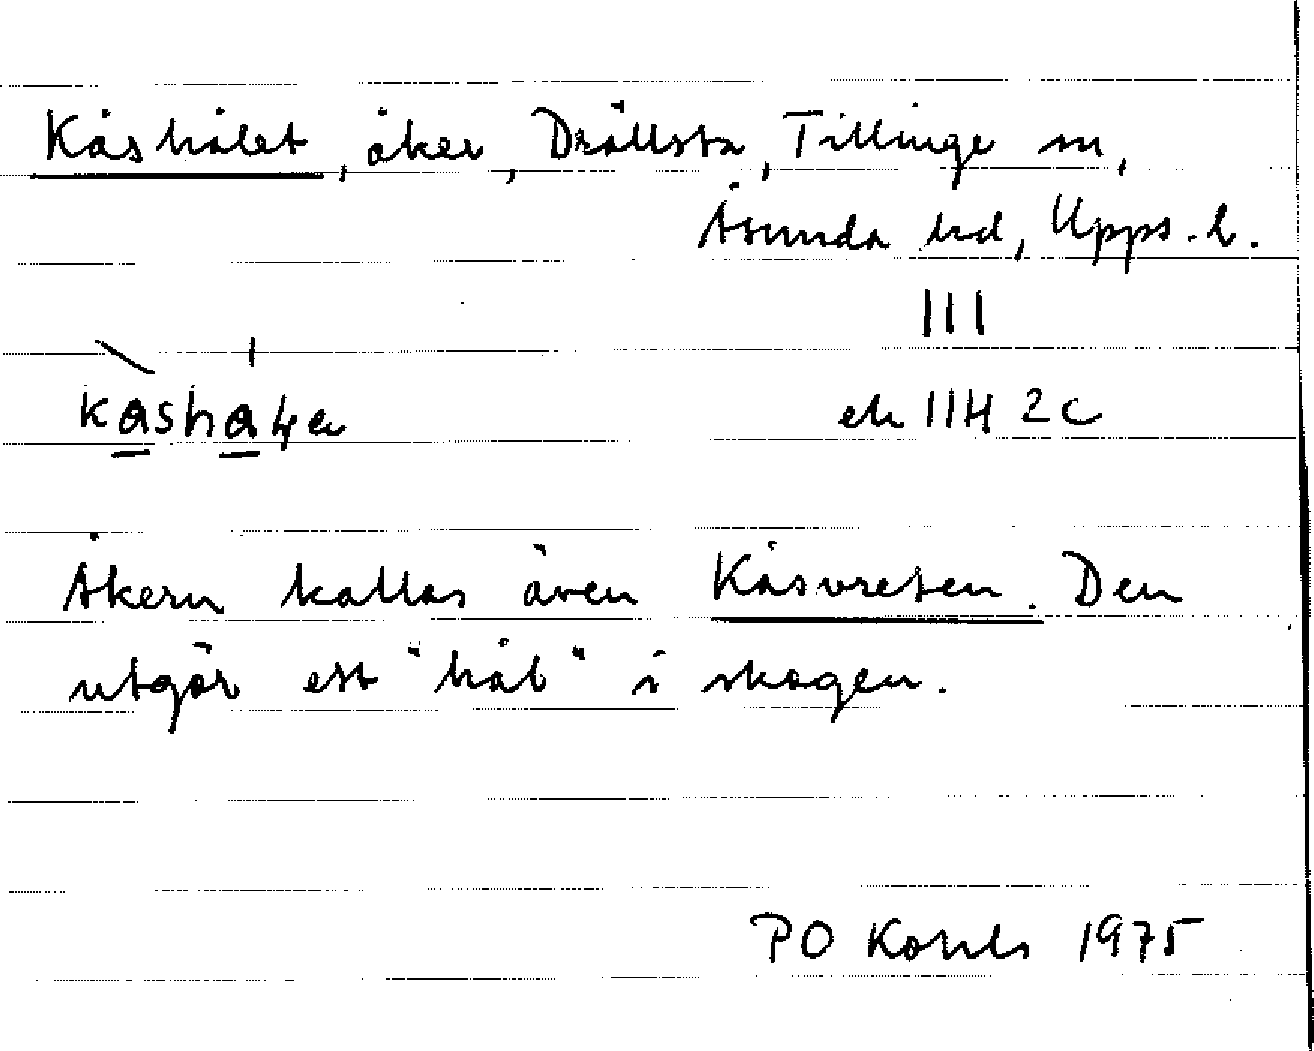 Kåshålet, åker, Drällsta, Tillinge sn,
Åsunda hd, Upps. l.
III
ek 11H 2c
Åkern kallas även Kåsvreten. Den
utgör ett "hål" i skogen.
PO 1975